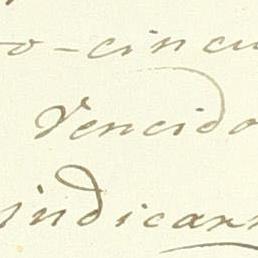 o-cincu
Vencido
indicarr